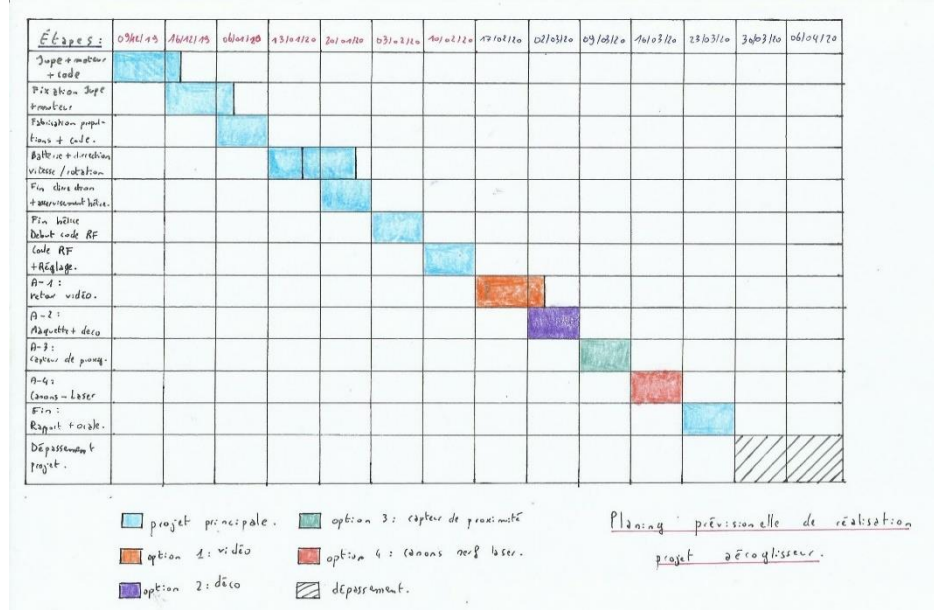 Étapes: 09/12/19 16/12/19 06/01/20 13/01/20 20/01/20 03/02/20 10/02/20 17/02/20 02/03/20 09/03/20 16/03/20 23/03/20 30/03/20 06/04/20
Jupe + moteur
+ code
Fixation Jupe
+ moteur
Fabrication propul-
tions + code.
Batterie + direction
vitesse / rotation
Fin direction
+ asservissement hélice.
Fin hélice
Debut code RF
Code RF
+ Réglage.
A-1:
retour vidéo.
A-2:
Maquette + deco
A-3:
Capteur de proxy.
A-4:
Canons - Laser
Fin:
Rapport + orale.
Dépassement
projet.
projet principale.
option 1: vidéo
option 2: déco
option 3: capteur de proximité
option 4: canons nerf laser.
dépassement.
Planing prévisionelle de réalisation
projet aéroglisseur.